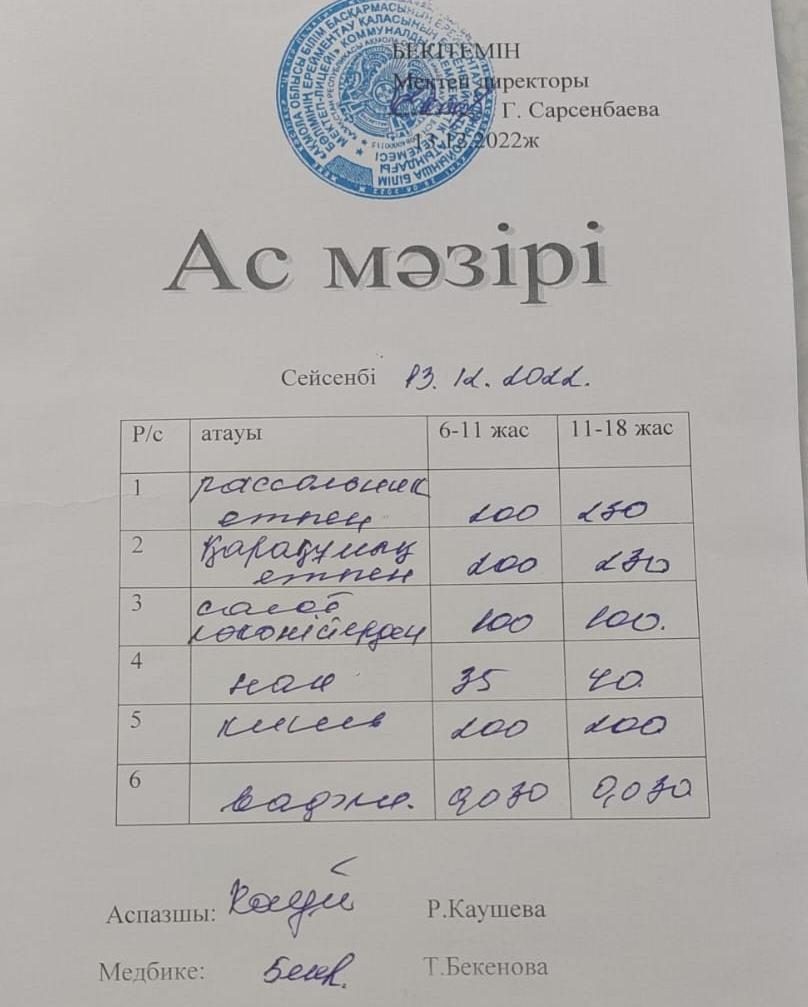 БЕКІТЕМІН
Мектеп директоры
Г. Сарсенбаева
13.12.2022ж
Ас мәзірі
Сейсенбі 13.12.2022.
Р/с атауы 6-11 жас 11-18 жас
1 рассольник
етпен 200 250
2 қарақұмық
етпен 200 230
3 салат
көкөністерден 100 100.
4 нан 35 40
5 кисель 200 200
6 0,030 0,030
Аспазшы: Р.Каушева
Медбике: Бек. Т.Бекенова